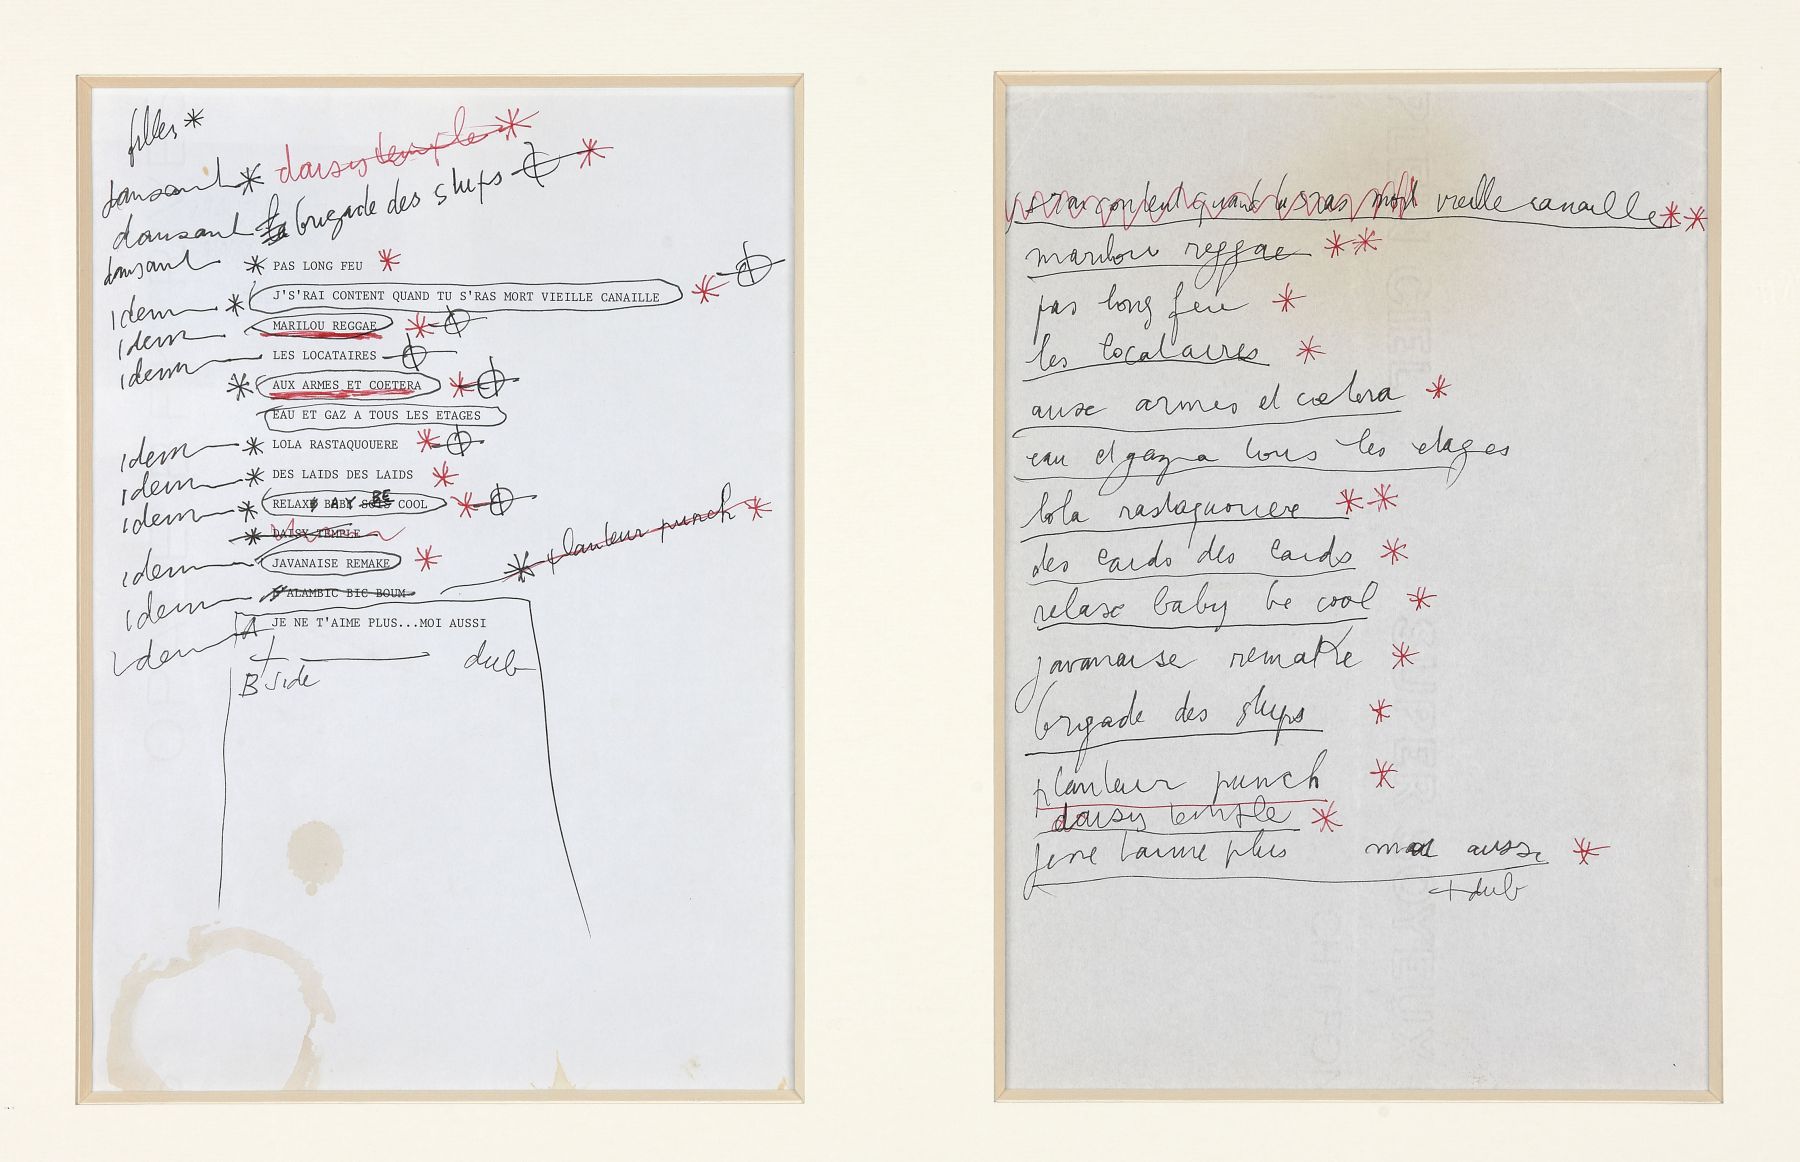 filles *
dansant * daisy temple *
dansant la brigade des slips *
dansant * PAS LONG FEU *
idem * J'S'RAI CONTENT QUAND TU S'RAS MORT VIEILLE CANAILLE *
idem MARILOU REGGAE *
idem LES LOCATAIRES
* AUX ARMES ET COETERA *
EAU ET GAZ A TOUS LES ETAGES
idem * LOLA RASTAQUOUERE *
idem * DES LAIDS DES LAIDS *
idem * RELAX BABY BE COOL *
* DAISY TEMPLE
idem JAVANAISE REMAKE *
* planteur punch *
idem ALAMBIC BIC BOUM
idem A JE NE T'AIME PLUS...MOI AUSSI
+ dub
B side
s'rai content quand tu s'ras mort vieille canaille **
marilou reggae **
pas long feu *
les locataires *
aux armes et cœtera *
eau et gaz a tous les etages
lola rastaquouere **
des laids des laids *
relax baby be cool *
javanaise remake *
brigade des slips *
planteur punch *
daisy temple *
je ne t'aime plus moi aussi *
+ dub